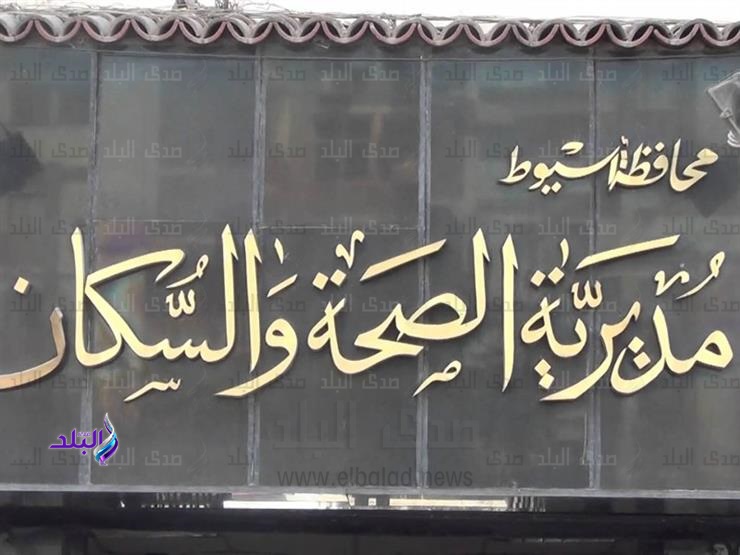 محافظة أسيوط
مديرية الصحة والسكان
البلد
صدى البلد
www.elbalad.news